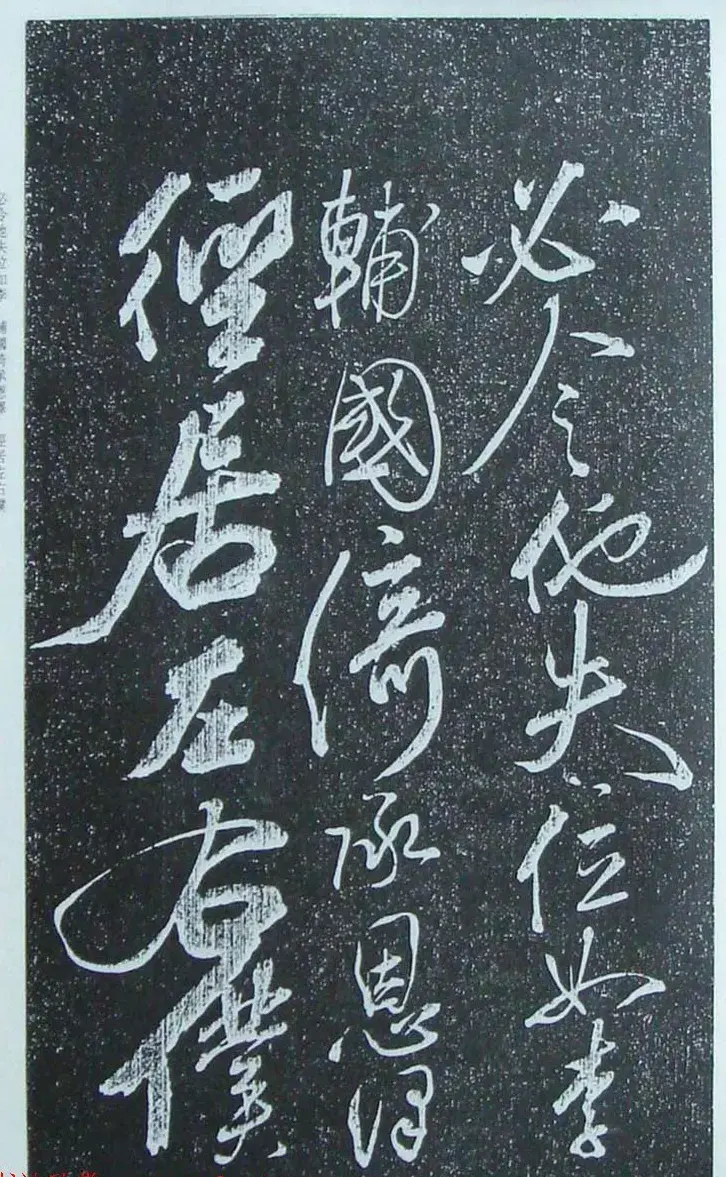 必令他失位如李
輔國倚承恩澤
徑居左右僕
必令他失位如李　輔國倚承恩澤　徑居左右僕